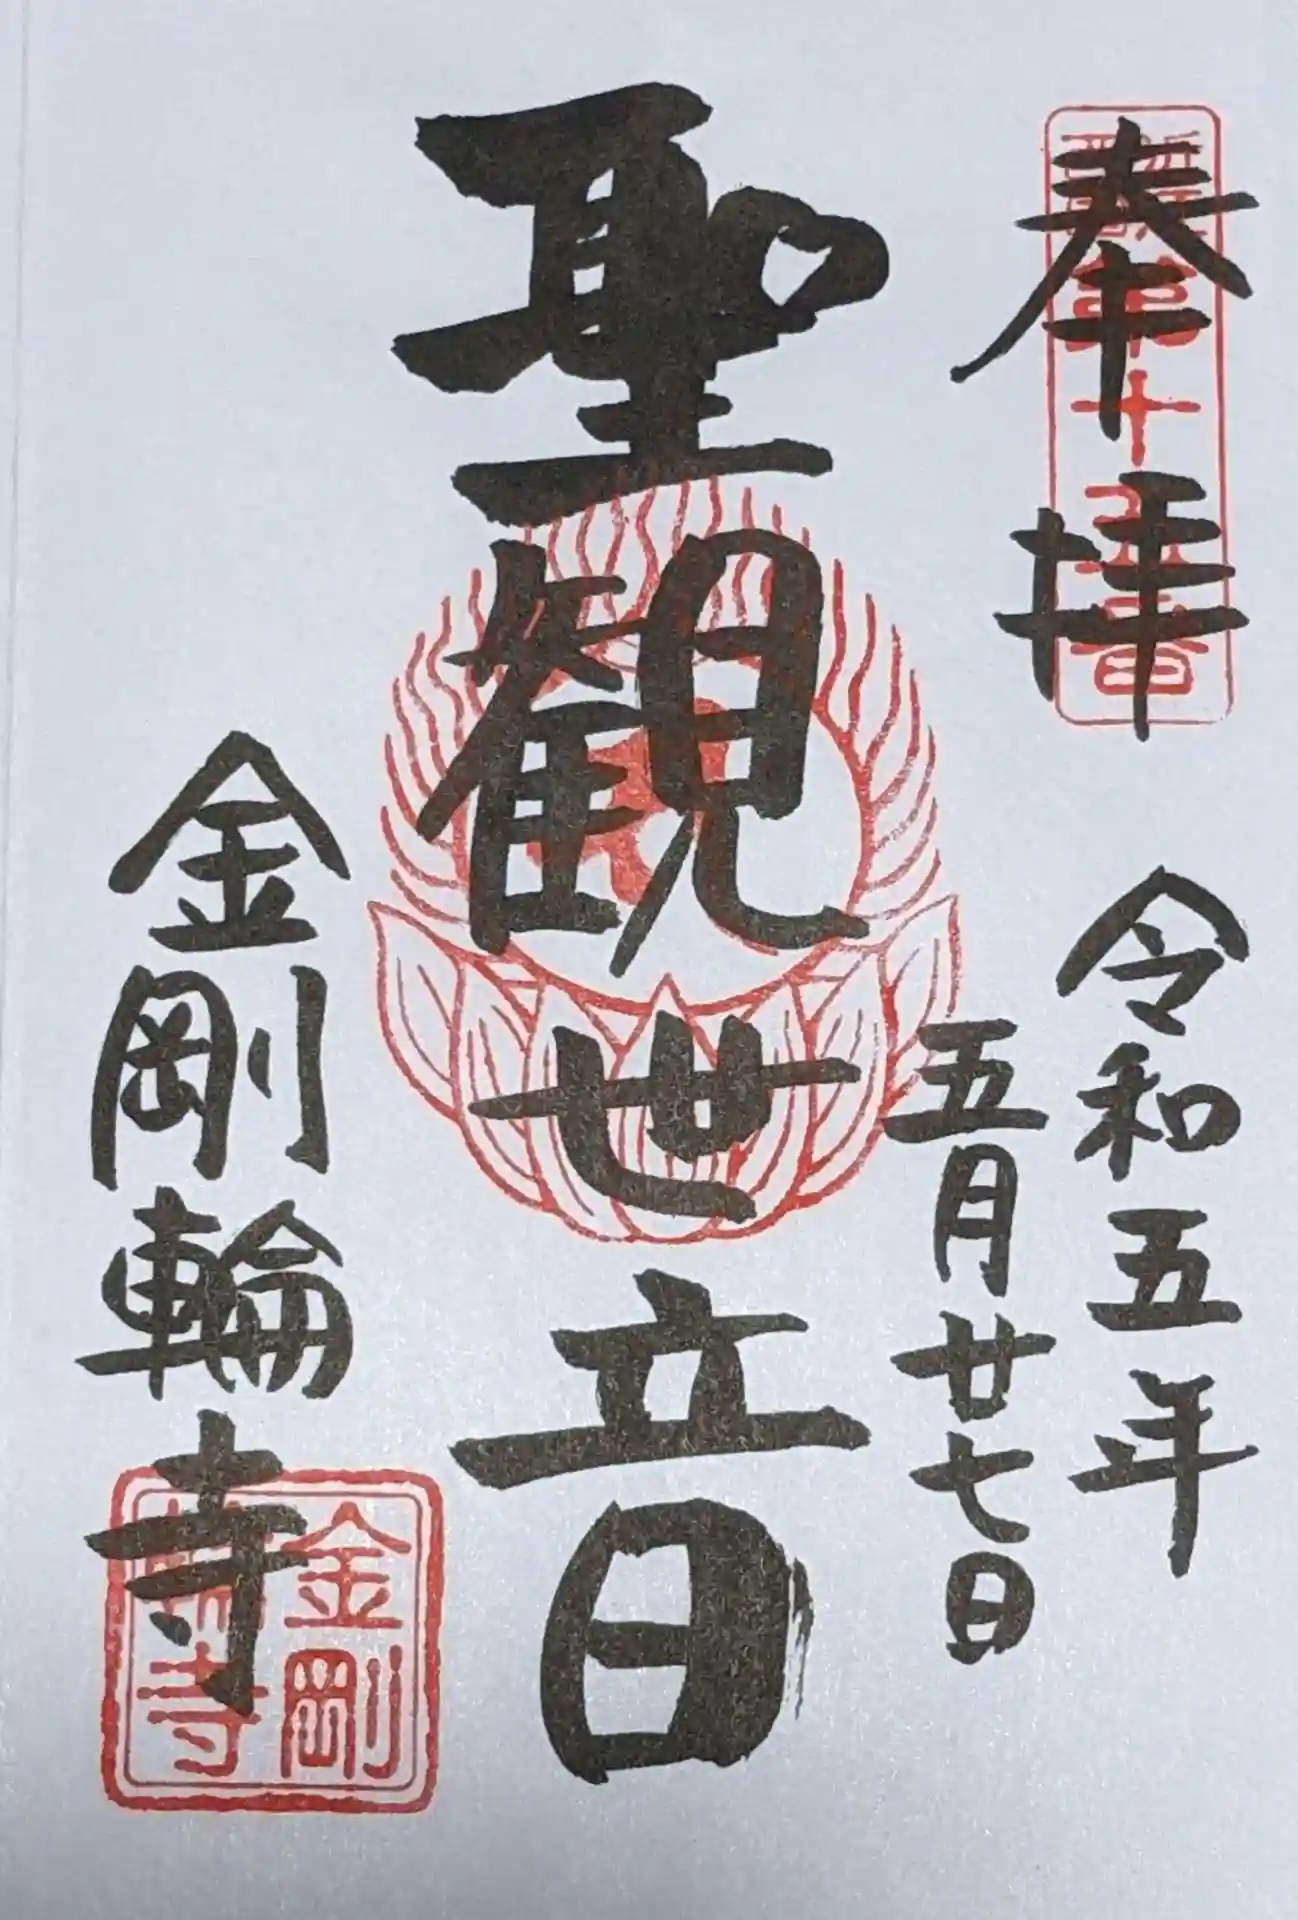 奉拝
第十五番
令和五年
五月廿七日
聖観世音
金剛輪寺
金剛
輪寺